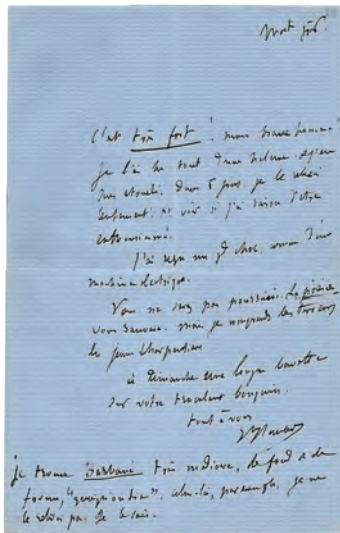 C'est très fort ! mon brave homme !
Je l'ai lu tout d'une haleine. et j'en
suis étourdi. Dans 8 jours, je le relirai
lentement, pr voir si j'ai raison d'être
enthousiasmé.
J'ai reçu un gd choc, comme d'une
machine électrique.
Vous ne serez pas poursuivi. La préface
vous sauvera. mais je comprends les terreurs
du jeune Charpentier
à Dimanche une longue bavette
sur votre bouquin.
tout à vous
Je trouve Barbara très médiocre, de fond & de
forme, "quoiqu'on die". celui-là, par exemple, je ne
le relirai pas. Je le sais.